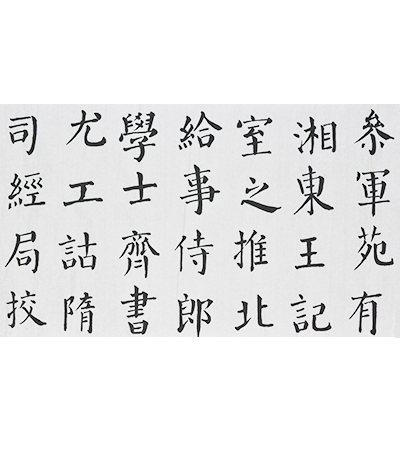 叅軍苑有
湘東王記
室之推北
給事侍郎
學士齊書
尤工詁隋
司經局挍